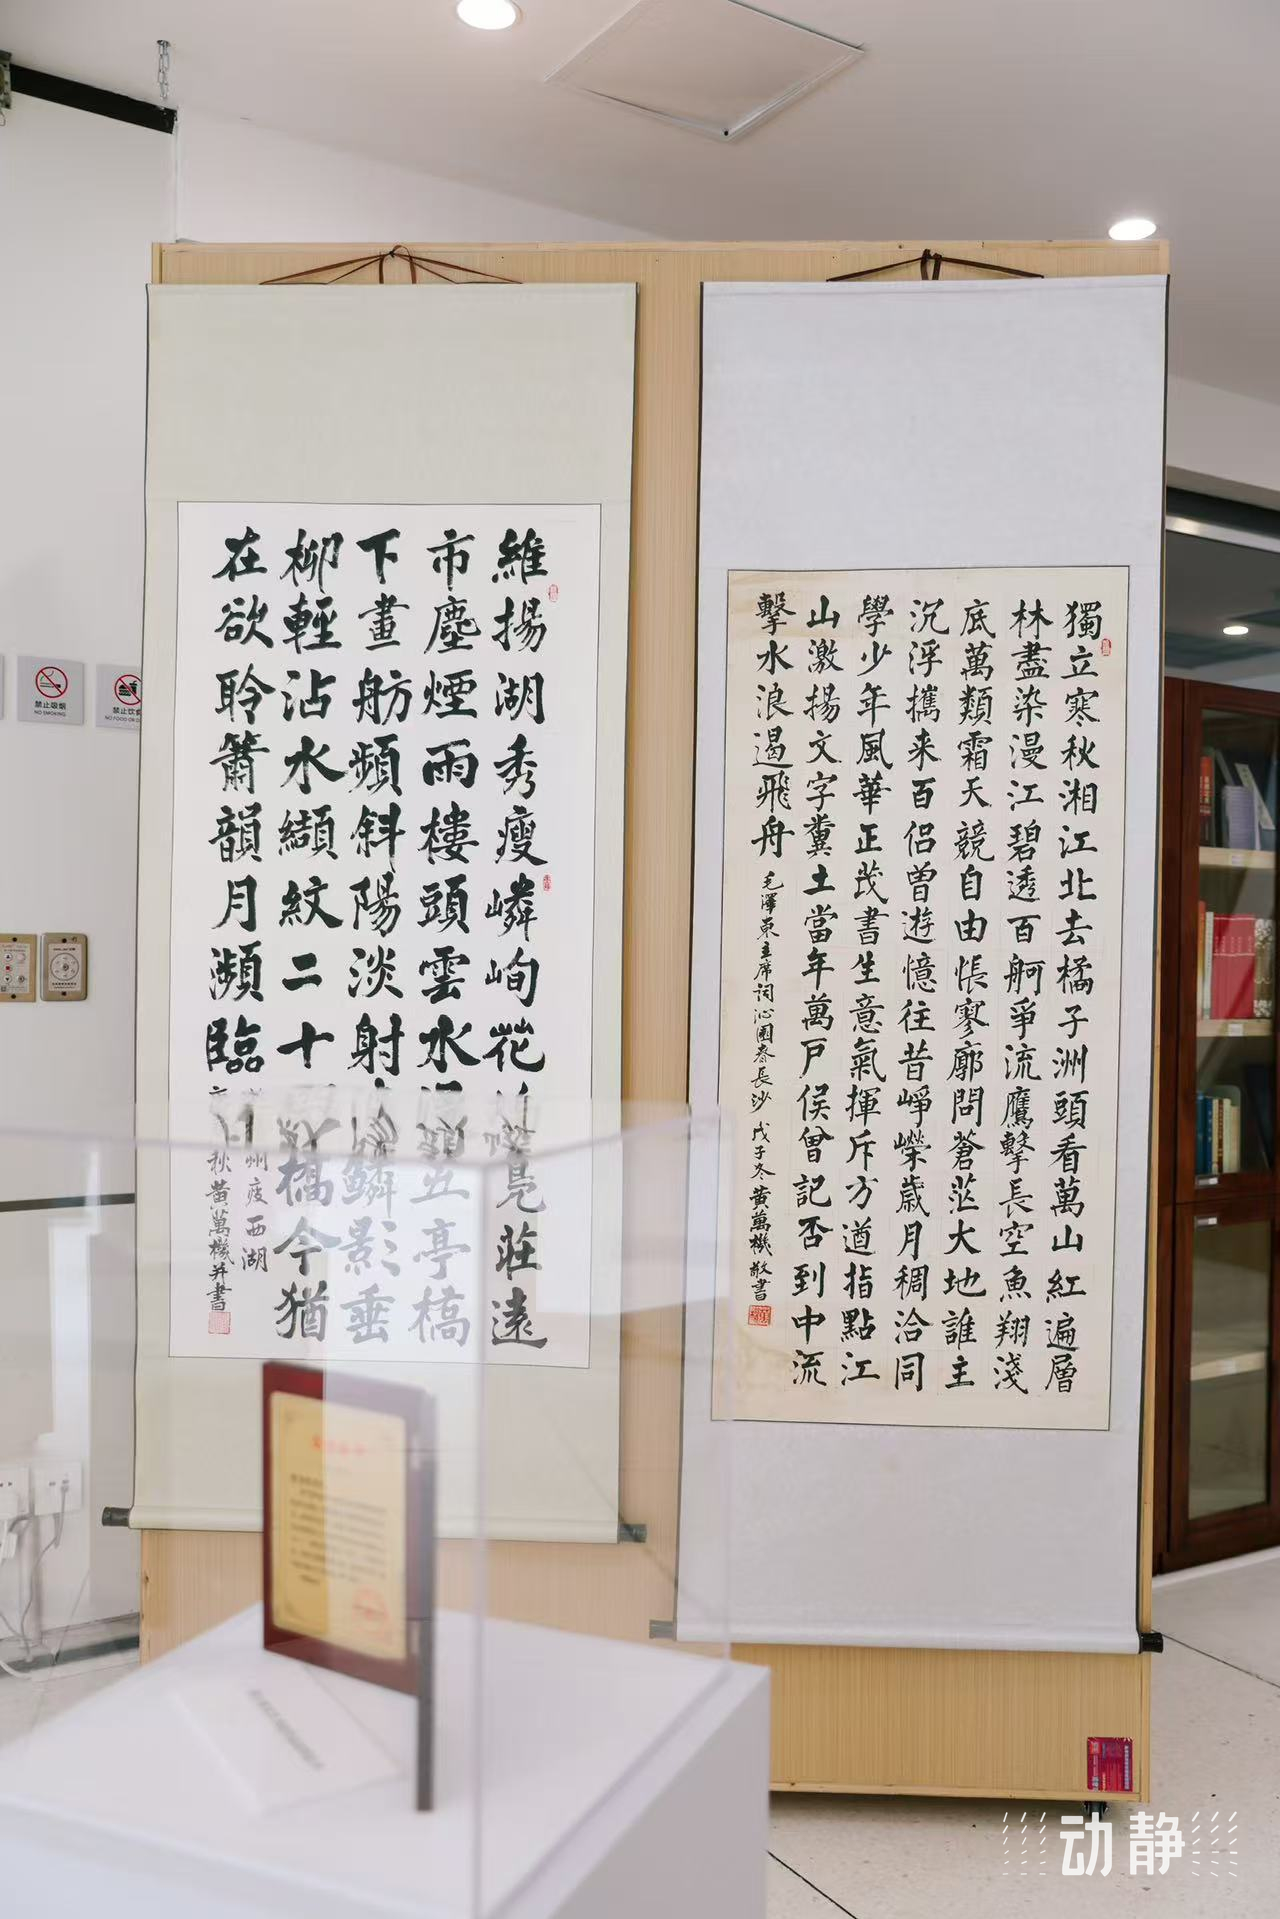 獨立寒秋湘江北去橘子洲頭看萬山紅遍層
林盡染漫江碧透百舸爭流鷹擊長空魚翔淺
底萬類霜天競自由悵寥廓問蒼茫大地誰主
沉浮攜来百侶曾遊憶往昔崢嶸歲月稠洽同
學少年風華正茂書生意氣揮斥方遒指點江
山激揚文字糞土當年萬戶侯曾記否到中流
擊水浪遏飛舟
毛澤東主席詞沁園春長沙 戊子冬黄萬機敬書
維揚湖秀瘦嶙峋花
莊遠
市塵煙雨樓頭雲水
五亭橋
下畫舫頻斜陽淡射
鱗影垂
柳輕沾水纈紋二十
橋今猶
在欲聆簫韻月瀕臨
州瘦西湖
秋黄萬機并書
禁止吸烟
NO SMOKING
禁止饮食
动静